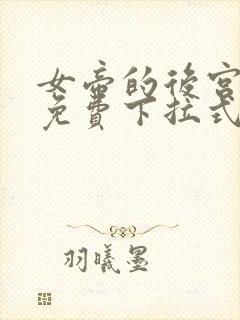 女帝的後宮
免費下拉式
羽曦墨